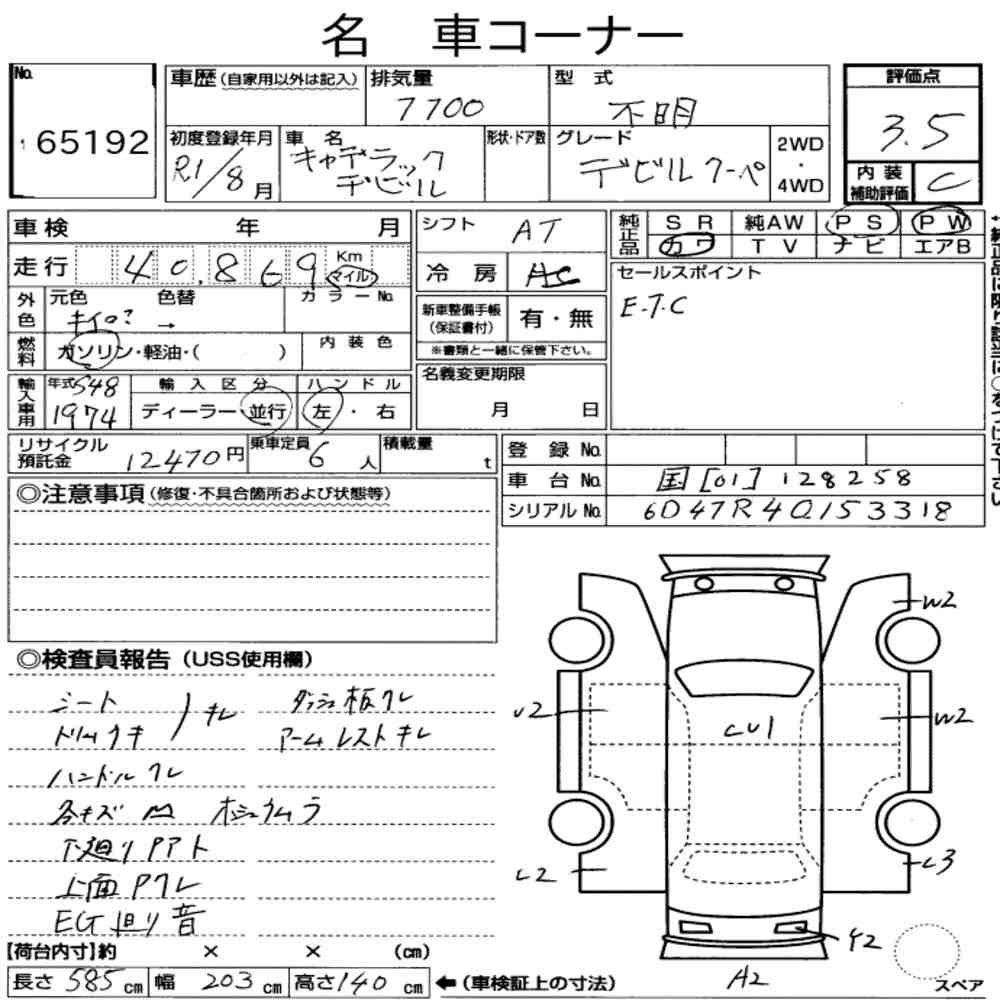 名 車コーナー
No. 65192
車歴 (自家用以外は記入) 排気量 7700 型式 不明
初度登録年月 R1/8月 車名 キャデラック デビル 形状・ドア数 グレード デビルクーペ 2WD・4WD
評価点 3.5
内装補助評価 C
車検 年 月
走行 40,869 Km マイル
外色 元色 キイロ? 色替 → カラーNo.
燃料 ガソリン・軽油・( ) 内装色
輸入車用 年式 S48 1974 輸入区分 ディーラー・並行 ハンドル 左・右
シフト AT
冷房 AC
新車整備手帳(保証書付) 有・無
※書類と一緒に保管下さい。
名義変更期限 月 日
純正品 SR 純AW PS PW
カワ TV ナビ エアB
セールスポイント
E.T.C
リサイクル預託金 12470円 乗車定員 6人 積載量 t
登録No.
車台No. 国[01]128258
シリアルNo. 6D47R4Q153318
◎注意事項(修復・不具合箇所および状態等)
◎検査員報告(USS使用欄)
シート ダッシュ板ワレ
ドリムウチ )キレ アームレストキレ
ハンドルワレ
各キズ凹
下廻りPアト
上面Pワレ
EG廻り音
W2
U2
W2
CU1
L2
L3
Y2
A2
スペア
【荷台内寸】約 × × (cm)
長さ 585cm 幅 203cm 高さ 140cm ←(車検証上の寸法)